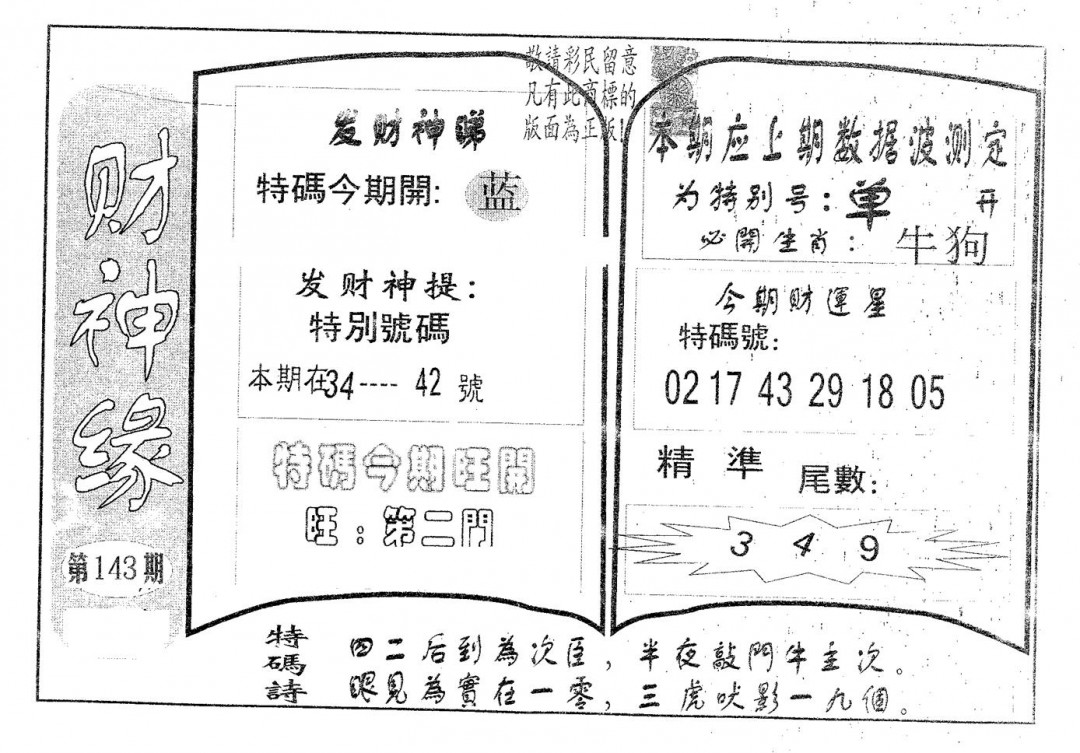 财神缘
第143期
敬請彩民留意
凡有此商標的
版面為正版!
发财神睇
特碼今期開: 蓝
发财神提:
特別號碼
本期在34----42號
特碼今期旺開
旺:第二門
本期应上期数据波测定
为特别号:单 开
必開生肖: 牛狗
今期財運星
特碼號:
02 17 43 29 18 05
精準 尾數:
3 4 9
特碼詩
四二后到為次臣,半夜敲門牛主次。
眼見為實在一零,三虎吠影一九個。